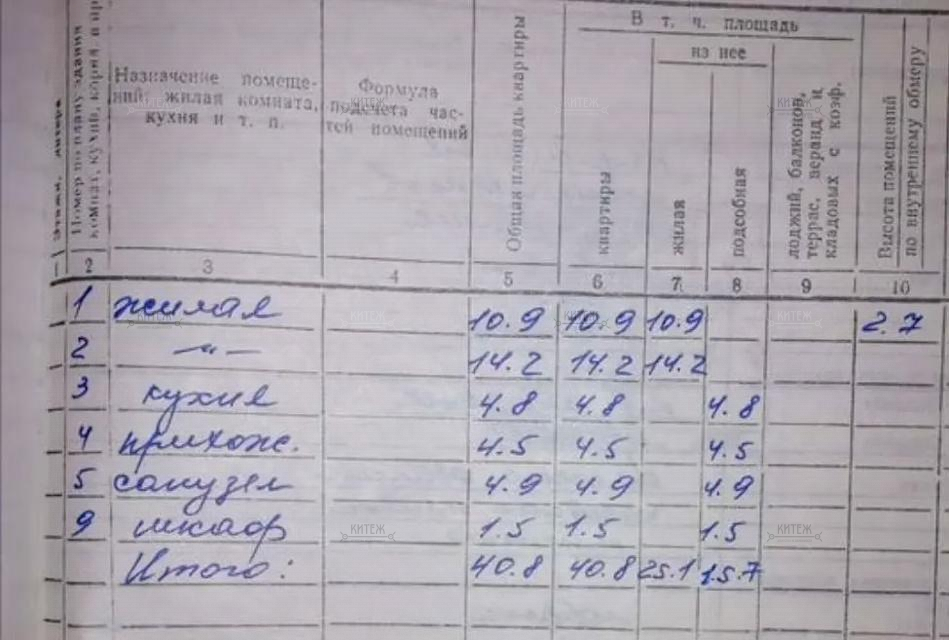 В т. ч. площадь
из нее
Этажи, литера
Номер по плану здания
комнат, кухни, корид. и пр
Назначение помеще-
ний: жилая комната,
кухня и т. п.
Формула
подсчета час-
тей помещений
Общая площадь квартиры
квартиры
жилая
подсобная
лоджий, балконов,
террас, веранд и
кладовых с коэф.
Высота помещений
по внутреннему обмеру
2 3 4 5 6 7 8 9 10
1 жилая 10.9 10.9 10.9 2.7
2 —"— 14.2 14.2 14.2
3 кухня 4.8 4.8 4.8
4 прихож. 4.5 4.5 4.5
5 санузел 4.9 4.9 4.9
9 шкаф 1.5 1.5 1.5
Итого: 40.8 40.8 25.1 15.7
КИТЕЖ